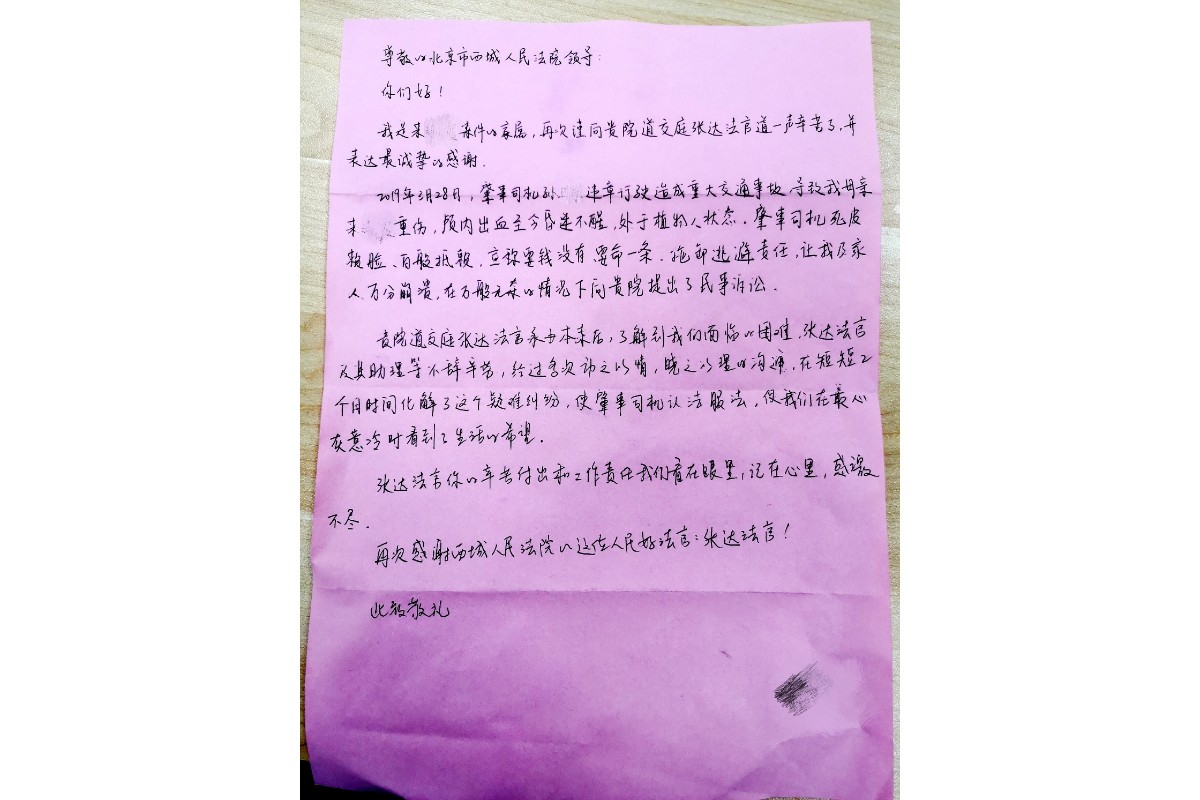 尊敬的北京市西城人民法院领导:
你们好!
我是某 案件的家属,再次请向贵院道交庭张达法官道一声辛苦了,并
表达最诚挚的感谢.
2019年3月28日,肇事司机孙 违章行驶造成重大交通事故,导致我母亲
重伤,颅内出血至今昏迷不醒,处于植物人状态.肇事司机死皮
赖脸、百般抵赖,立称要钱没有要命一条.推卸逃避责任,让我及家
人万分崩溃,在万般无奈的情况下向贵院提出了民事诉讼.
贵院道交庭张达法官承办本案后,了解到我们面临的困难,张达法官
及其助理等不辞辛劳,经过多次动之以情,晓之以理的沟通,在短短2
个月时间化解了这个疑难纠纷,使肇事司机认法服法,使我们在最心
灰意冷时看到了生活的希望.
张达法官你的辛苦付出和工作责任我们看在眼里,记在心里,感激
不尽.
再次感谢西城人民法院的这位人民好法官:张达法官!
此致敬礼